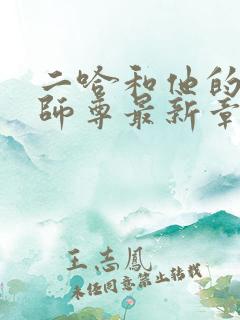 二哈和他的
師尊最新章
王志鳳
未经同意禁止转载